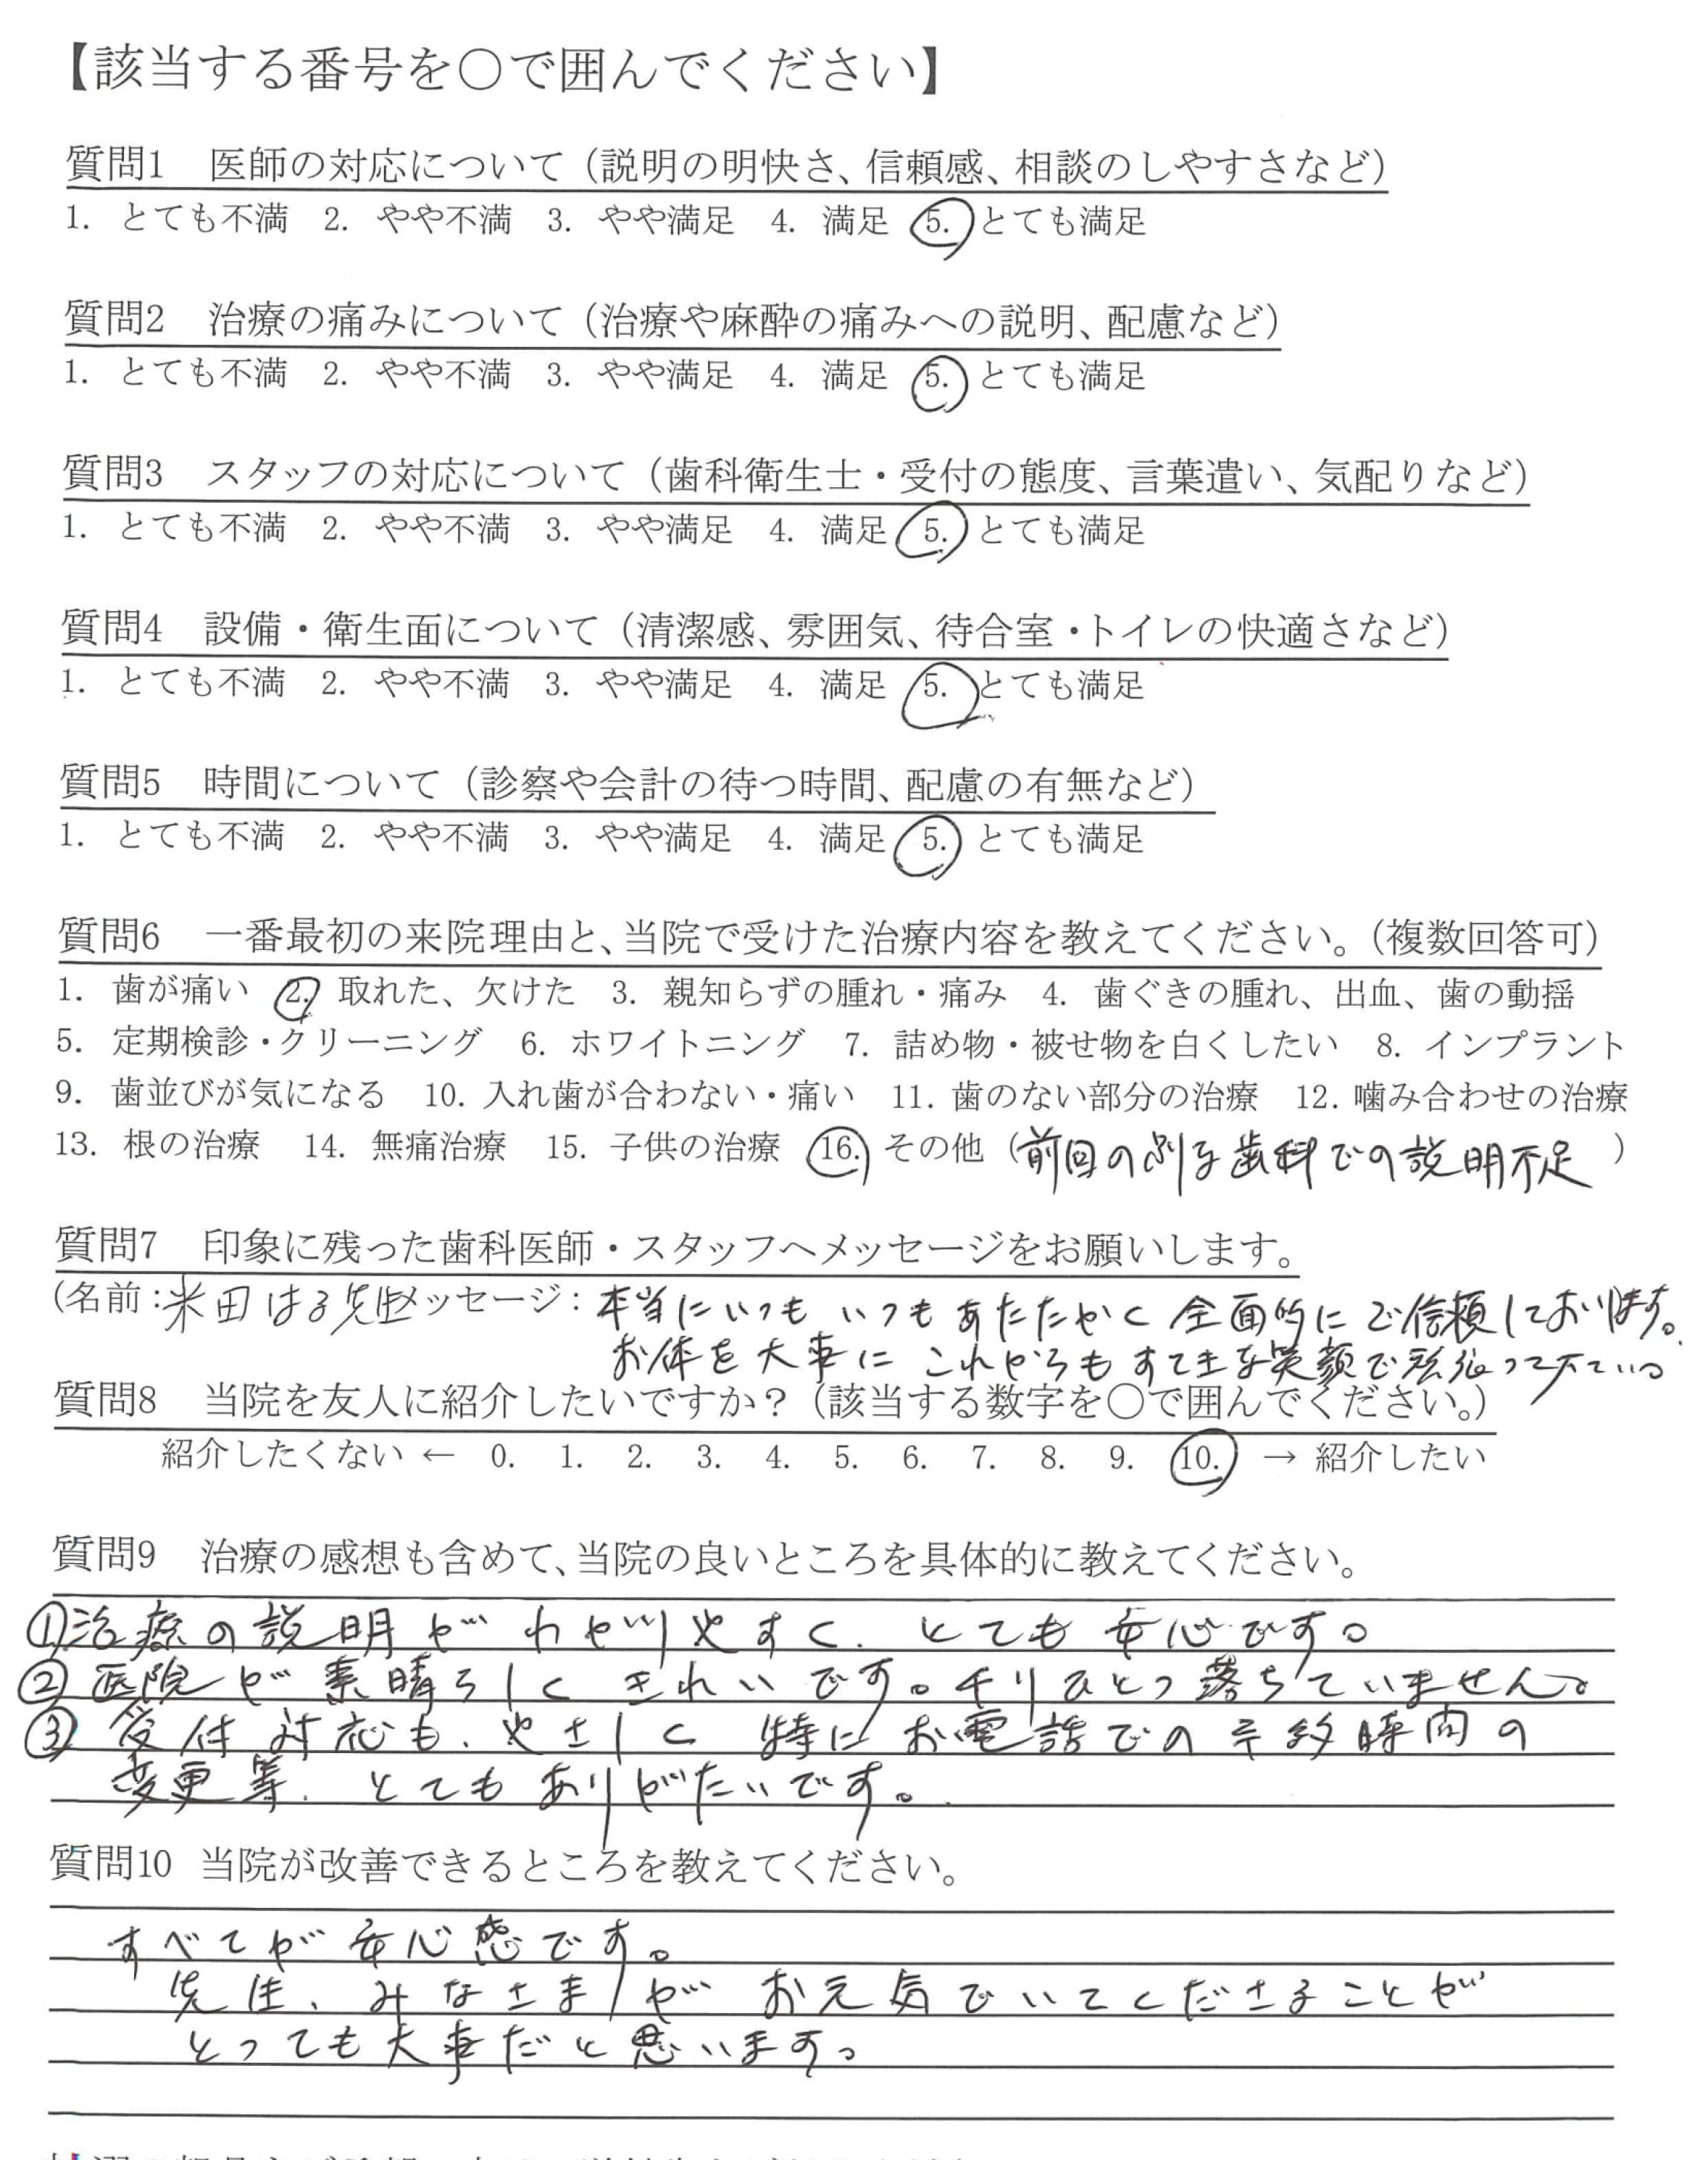 【該当する番号を〇で囲んでください】
質問1　医師の対応について（説明の明快さ、信頼感、相談のしやすさなど）
1. とても不満　2. やや不満　3. やや満足　4. 満足　5. とても満足
質問2　治療の痛みについて（治療や麻酔の痛みへの説明、配慮など）
1. とても不満　2. やや不満　3. やや満足　4. 満足　5. とても満足
質問3　スタッフの対応について（歯科衛生士・受付の態度、言葉遣い、気配りなど）
1. とても不満　2. やや不満　3. やや満足　4. 満足　5. とても満足
質問4　設備・衛生面について（清潔感、雰囲気、待合室・トイレの快適さなど）
1. とても不満　2. やや不満　3. やや満足　4. 満足　5. とても満足
質問5　時間について（診察や会計の待つ時間、配慮の有無など）
1. とても不満　2. やや不満　3. やや満足　4. 満足　5. とても満足
質問6　一番最初の来院理由と、当院で受けた治療内容を教えてください。（複数回答可）
1. 歯が痛い　2. 取れた、欠けた　3. 親知らずの腫れ・痛み　4. 歯ぐきの腫れ、出血、歯の動揺
5. 定期検診・クリーニング　6. ホワイトニング　7. 詰め物・被せ物を白くしたい　8. インプラント
9. 歯並びが気になる　10. 入れ歯が合わない・痛い　11. 歯のない部分の治療　12. 噛み合わせの治療
13. 根の治療　14. 無痛治療　15. 子供の治療　16. その他（前回の別な歯科での説明不足　）
質問7　印象に残った歯科医師・スタッフへメッセージをお願いします。
（名前：米田はる先生メッセージ：本当にいつも いつもあたたかく 全面的にご信頼しております。
お体を大事に これからもすてきな笑顔で頑張って下さい。
質問8　当院を友人に紹介したいですか？（該当する数字を〇で囲んでください。）
紹介したくない ← 0. 1. 2. 3. 4. 5. 6. 7. 8. 9. 10. → 紹介したい
質問9　治療の感想も含めて、当院の良いところを具体的に教えてください。
①治療の説明がわかりやすく、とても安心です。
②医院が素晴らしくきれいです。チリひとつ落ちていません。
③受付対応も、やさしく 特にお電話での予約時間の
変更等、とてもありがたいです。
質問10　当院が改善できるところを教えてください。
すべてが安心感です。
先生、みなさまが お元気でいてくださることが
とっても大事だと思います。